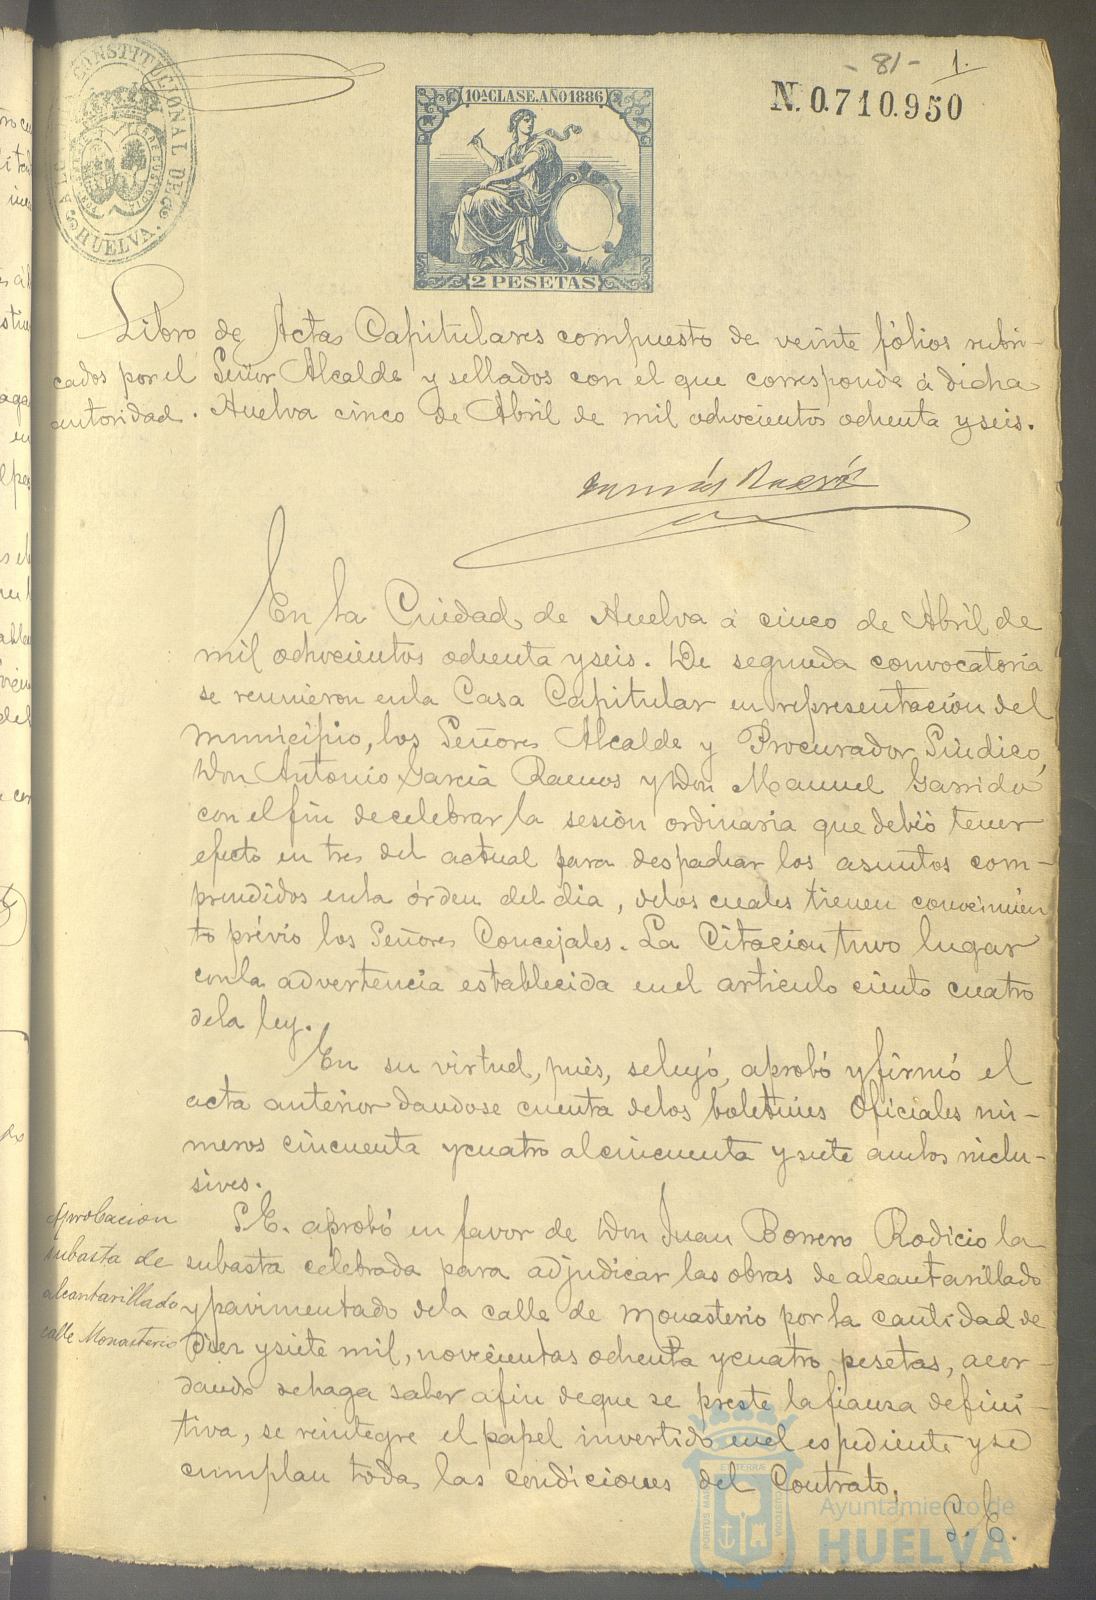 - 81 - 1.
N. 0.710.950
10ª CLASE. AÑO 1886
2 PESETAS
CONSTITUCIONAL DE
HUELVA.
Libro de Actas Capitulares compuesto de veinte fólios rubri-
cados por el Señor Alcalde y sellados con el que corresponde á dicha
autoridad. Huelva cinco de Abril de mil ochocientos ochenta y seis.
En la Ciudad de Huelva á cinco de Abril de
mil ochocientos ochenta y seis. De segunda convocatoria
se reunieron en la Casa Capitular en representación del
Municipio, los Señores Alcalde y Procurador Síndico,
Don Antonio García Ramos y Don Manuel Garrido
con el fin de celebrar la sesión ordinaria que debió tener
efecto en tres del actual para despachar los asuntos com-
prendidos en la órden del dia, delos cuales tienen conocimien
to prévio los Señores Concejales. La Citacion tuvo lugar
con la advertencia establecida en el articulo ciento cuatro
dela ley.
En su virtud, pues, se leyó, aprobó y firmó el
acta anterior dandose cuenta delos boletines Oficiales nú-
meros cincuenta y cuatro al cincuenta y siete ambos inclu-
sives.
Aprobacion
subasta de
alcantarillado
calle Monasterio
S. E. aprobó en favor de Don Juan Borrero Rodicio la
subasta celebrada para adjudicar las obras de alcantarillado
y pavimentado dela calle de Monasterio por la cantidad de
Diez y siete mil, novecientas ochenta y cuatro pesetas, acor-
dando se haga saber a fin de que se preste la fianza defini-
tiva, se reintegre el papel invertido en el espediente y se
cumplan todas las condiciones del Contrato.
S. E.
Ayuntamiento de
HUELVA